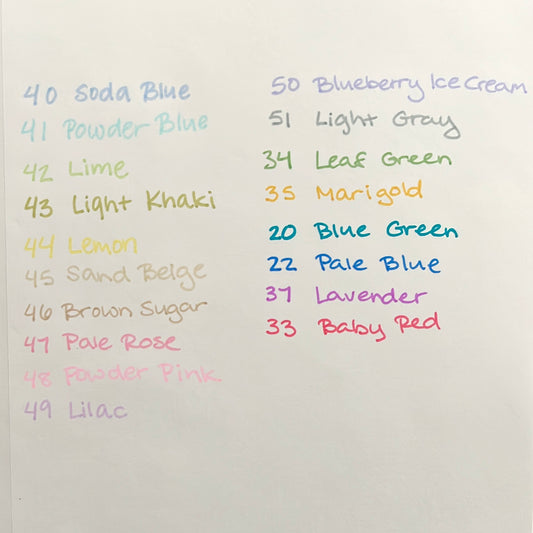 40 Soda Blue
41 Powder Blue
42 Lime
43 Light Khaki
44 Lemon
45 Sand Beige
46 Brown Sugar
47 Pale Rose
48 Powder Pink
49 Lilac
50 Blueberry Ice Cream
51 Light Gray
34 Leaf Green
35 Marigold
20 Blue Green
22 Pale Blue
37 Lavender
33 Baby Red